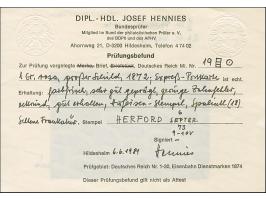 DIPL.-HDL. JOSEF HENNIES
Bundesprüfer
Mitglied im Bund der philatelistischen Prüfer e. V.
des BDPh und des APHV
Ahornweg 21, D-3200 Hildesheim, Telefon 4 74 02
Prüfungsbefund
Zur Prüfung vorgelegte Marke, Brief, Briefstück, Deutsches Reich Mi. Nr. 19
1 Gr. rosa, großer Schild, 1872, Expreß-Postkarte ist echt.
Erhaltung: farbfrisch, sehr gut geprägt, Zahnfehler,
gut erhalten, Hufeisen-Stempel, Spalink (18)
Seltene Frankatur. Stempel HERFORD 6
SEPTBR
73
Signiert
Hildesheim 6.6.1981 Hennies
Prüfgebiet: Deutsches Reich Nr. 1-30, Eisenbahn Dienstmarken 1874
Dieser Prüfungsbefund gilt nicht als Attest